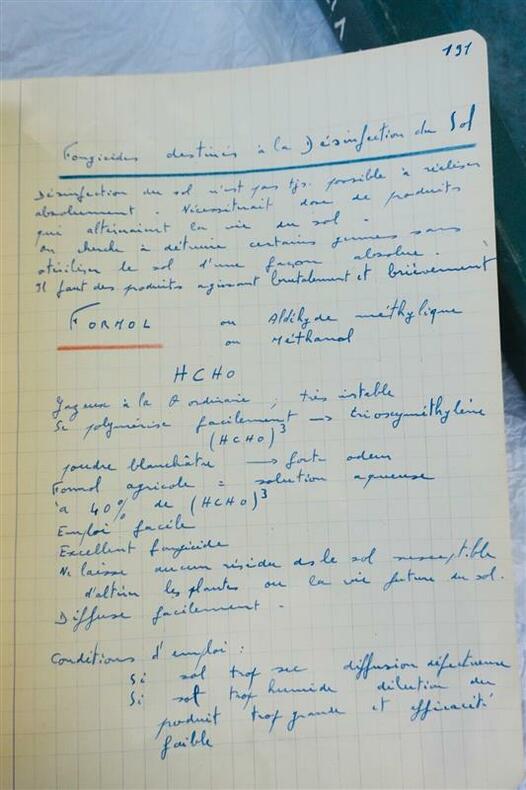 191
Fongicides destinés à la Désinfection du Sol
Désinfection du sol n'est pas tjs. possible à réaliser
absolument. Nécessiterait dose de produits
qui altèreraient la vie du sol.
on cherche à détruire certains germes sans
stériliser le sol d'une façon absolue.
Il faut des produits agissant brutalement et brièvement
FORMOL ou Aldéhyde méthylique
ou Méthanal
HCHO
Gazeux à la θ ordinaire, très instable
Se polymérise facilement → trioxyméthylène
(HCHO)³
poudre blanchâtre → forte odeur
Formol agricole = solution aqueuse
à 40% de (HCHO)³
Emploi facile
Excellent fongicide
Ne laisse aucun résidu ds le sol susceptible
d'altérer les plantes ou la vie future du sol.
Diffuse facilement.
Conditions d'emploi :
Si sol trop sec diffusion défectueuse
Si sol trop humide dilution du
produit trop grande et efficacité
faible